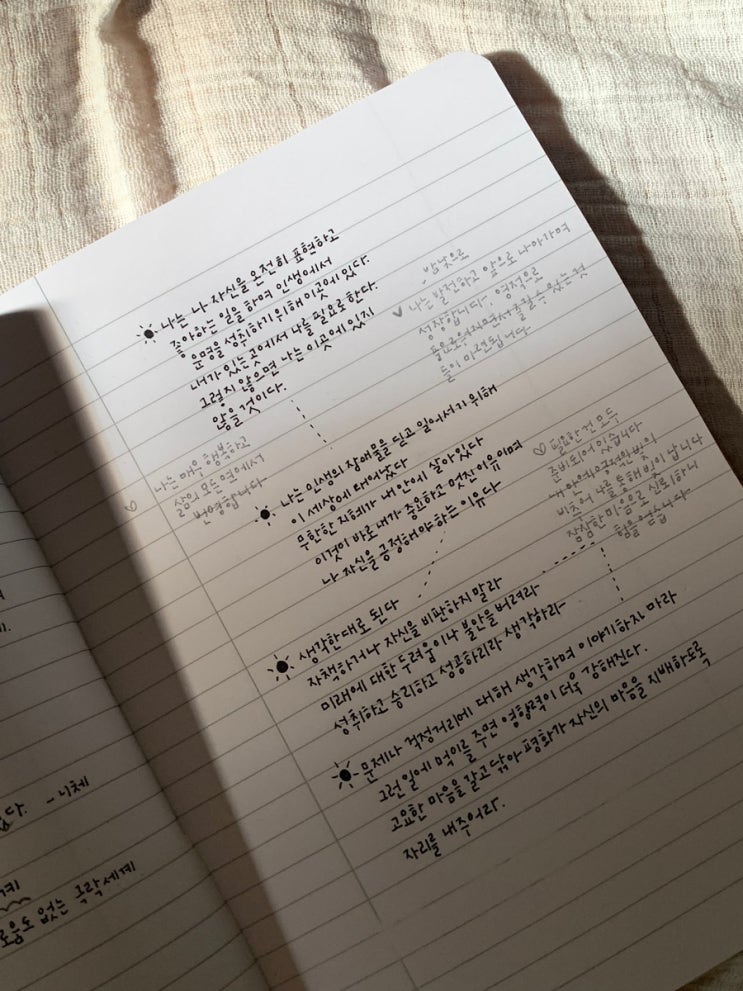 나는 나 자신을 온전히 표현하고
좋아하는 일을 하며 인생에서
운명을 성취하기 위해 이곳에 있다.
내가 있는 곳에서 나를 필요로 한다.
그렇지 않으면 나는 이곳에 있지
않을 것이다.
밤낮으로
나는 발전하고 앞으로 나아가며
성장합니다. 영적으로
것
들이 마련됩니다
나는 매우 행복하고
삶의 모든 면에서
번영합니다
나는 인생의 장애물을 딛고 일어서기 위해
이 세상에 태어났다
무한한 지혜가 내 안에 살아있다
이것이 바로 내가 중요하고 멋진 이유이며
나 자신을 긍정해야하는 이유다
필요한 건 모두
준비되어 있습니다
내 안의 영적인 법의
빛이 나를 통해 빛이 납니다
잠잠한 마음으로 신뢰하니
힘을 얻습니다
생각한대로 된다
자책하거나 자신을 비판하지 말라
미래에 대한 두려움이나 불안을 버려라
성취하고 승리하고 성공하리라 생각하라
문제나 걱정거리에 대해 생각하며 이야기하지 마라
그런 일에 먹이를 주면 영향력이 더욱 강해진다.
고요한 마음을 갈고 닦아 평화가 자신의 마음을 지배하도록
자리를 내주어라.
- 니체
없는 극락세계